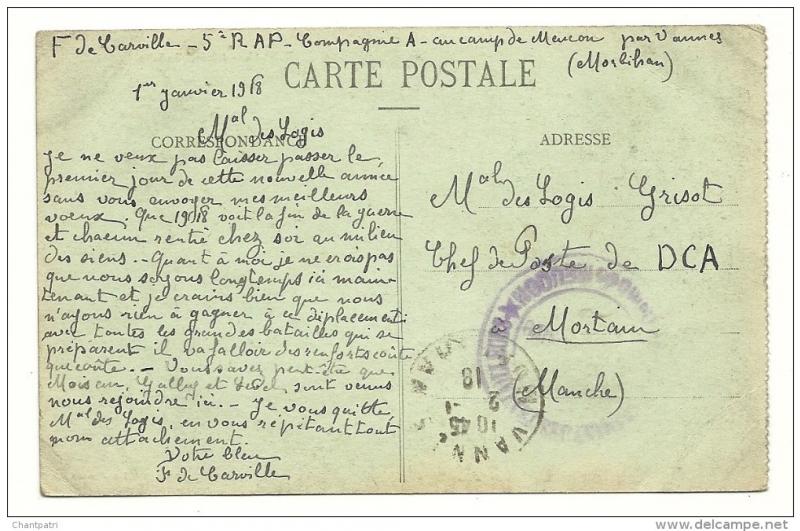 F de Carville - 5e R A P - Compagnie A - au camp de Meucon par Vannes
(Morbihan)
CARTE POSTALE
1er janvier 1918
Mal des Logis
CORRESPONDANCE
Je ne veux pas laisser passer le
premier jour de cette nouvelle année
sans vous envoyer mes meilleurs
voeux, Que 1918 voit la fin de la guerre
et chacun rentré chez soi au milieu
des siens - Quant à moi je ne crois pas
que nous soyons longtemps ici maine
tenant et je crains bien que nous
n'ayons rien à gagner à ce déplacement
avec toutes les grandes batailles qui se
préparent il va falloir des renforts coûte
que coûte. - Vous savez peut-être que
Moisan, Galluy et sont venus
nous rejoindre ici - Je vous quitte
Mal des Logis, en vous répétant tout
mon attachement.
Votre bleu
F de Carville
ADRESSE
Mal des Logis Grisot
Chef de Poste de DCA
Mortain
(Manche)
VANNES
10 45
2 -1
18
Chantpatri
www.delcampe.net